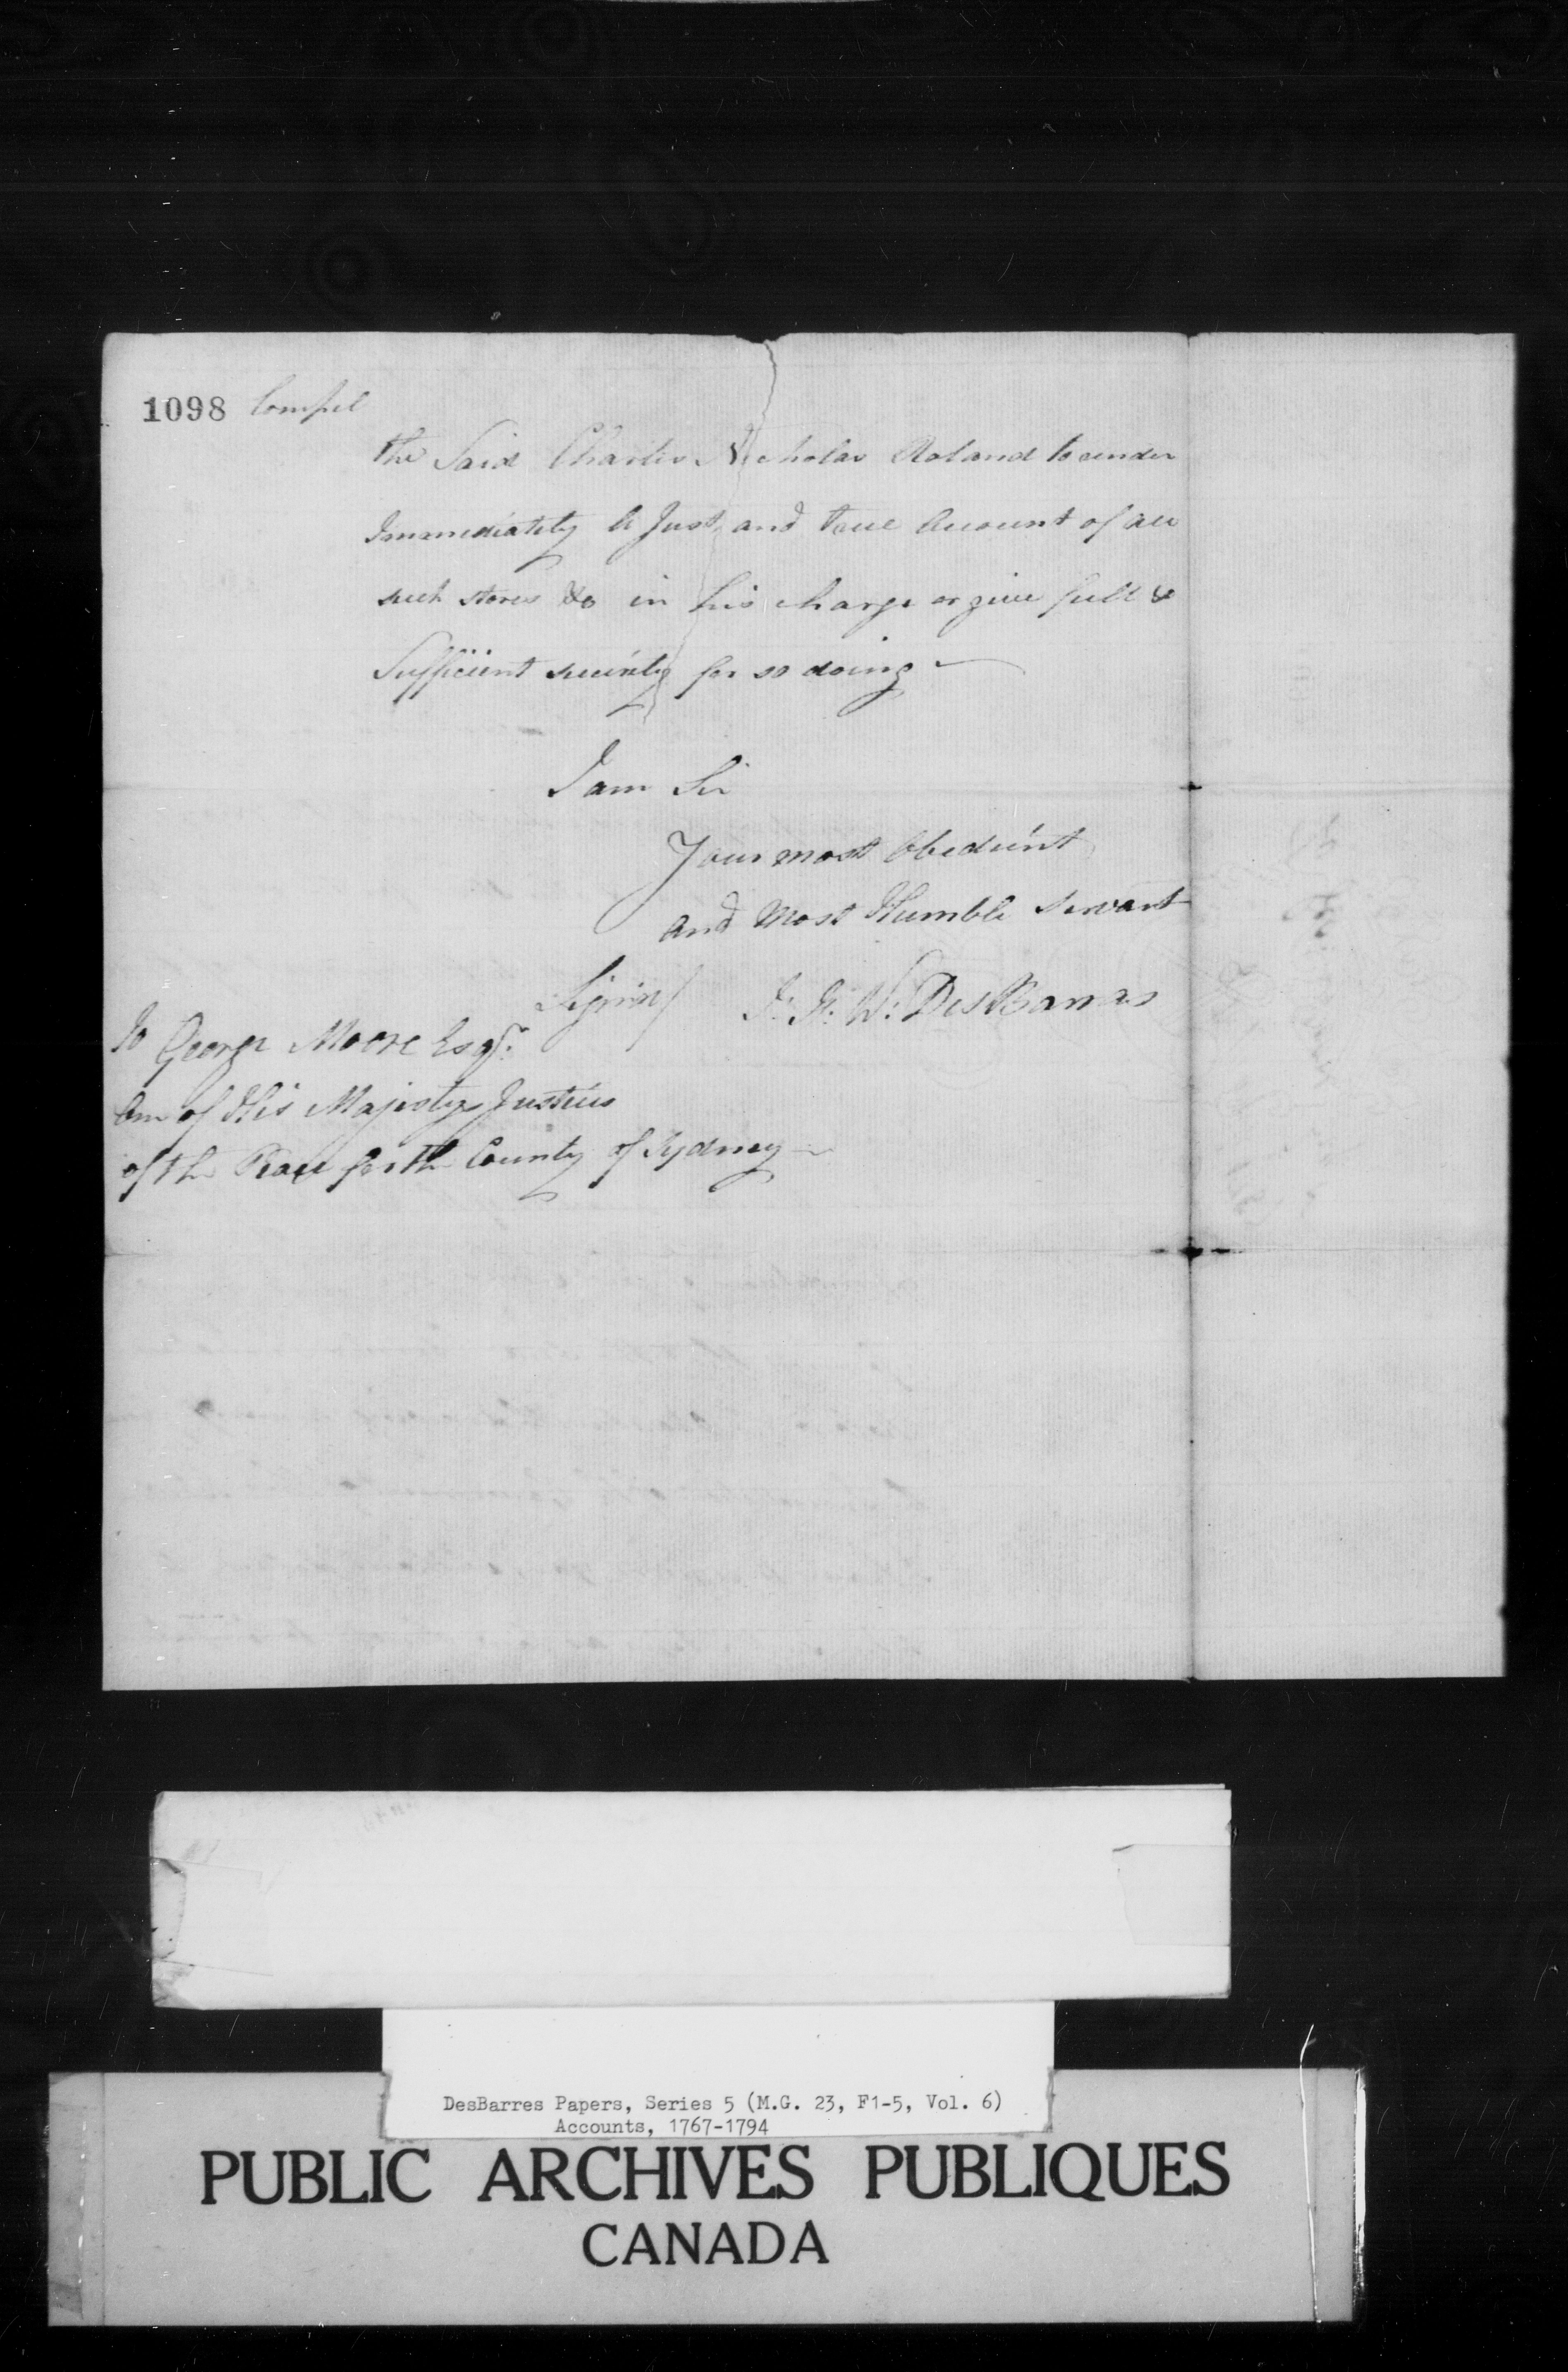 1098 Compel
the Said Charles Nicholas Roland to render
Immediately a Just and true Account of all
such stores &c in his charge or give full &
Sufficient security for so doing
I am Sir
Your most Obedient
and Most Humble Servant
Signed/ J. F. W. DesBarres
To George Moore Esqr.
One of His Majestys Justices
of the Peace for the County of Sydney
DesBarres Papers, Series 5 (M.G. 23, F1-5, Vol. 6)
Accounts, 1767-1794
PUBLIC ARCHIVES PUBLIQUES
CANADA